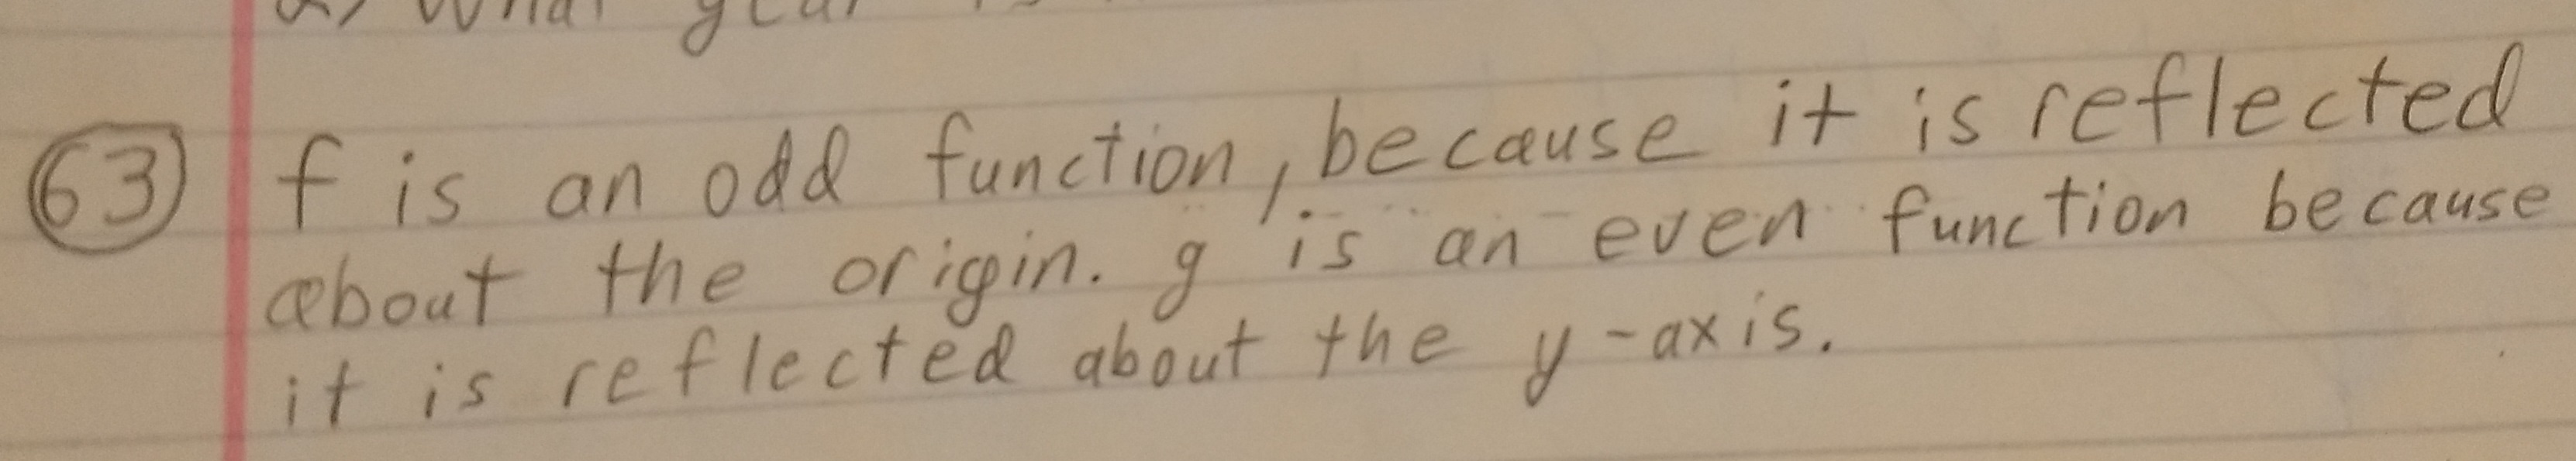 a) What year
63 f is an odd function, because it is reflected
about the origin. g is an even function because
it is reflected about the y-axis.